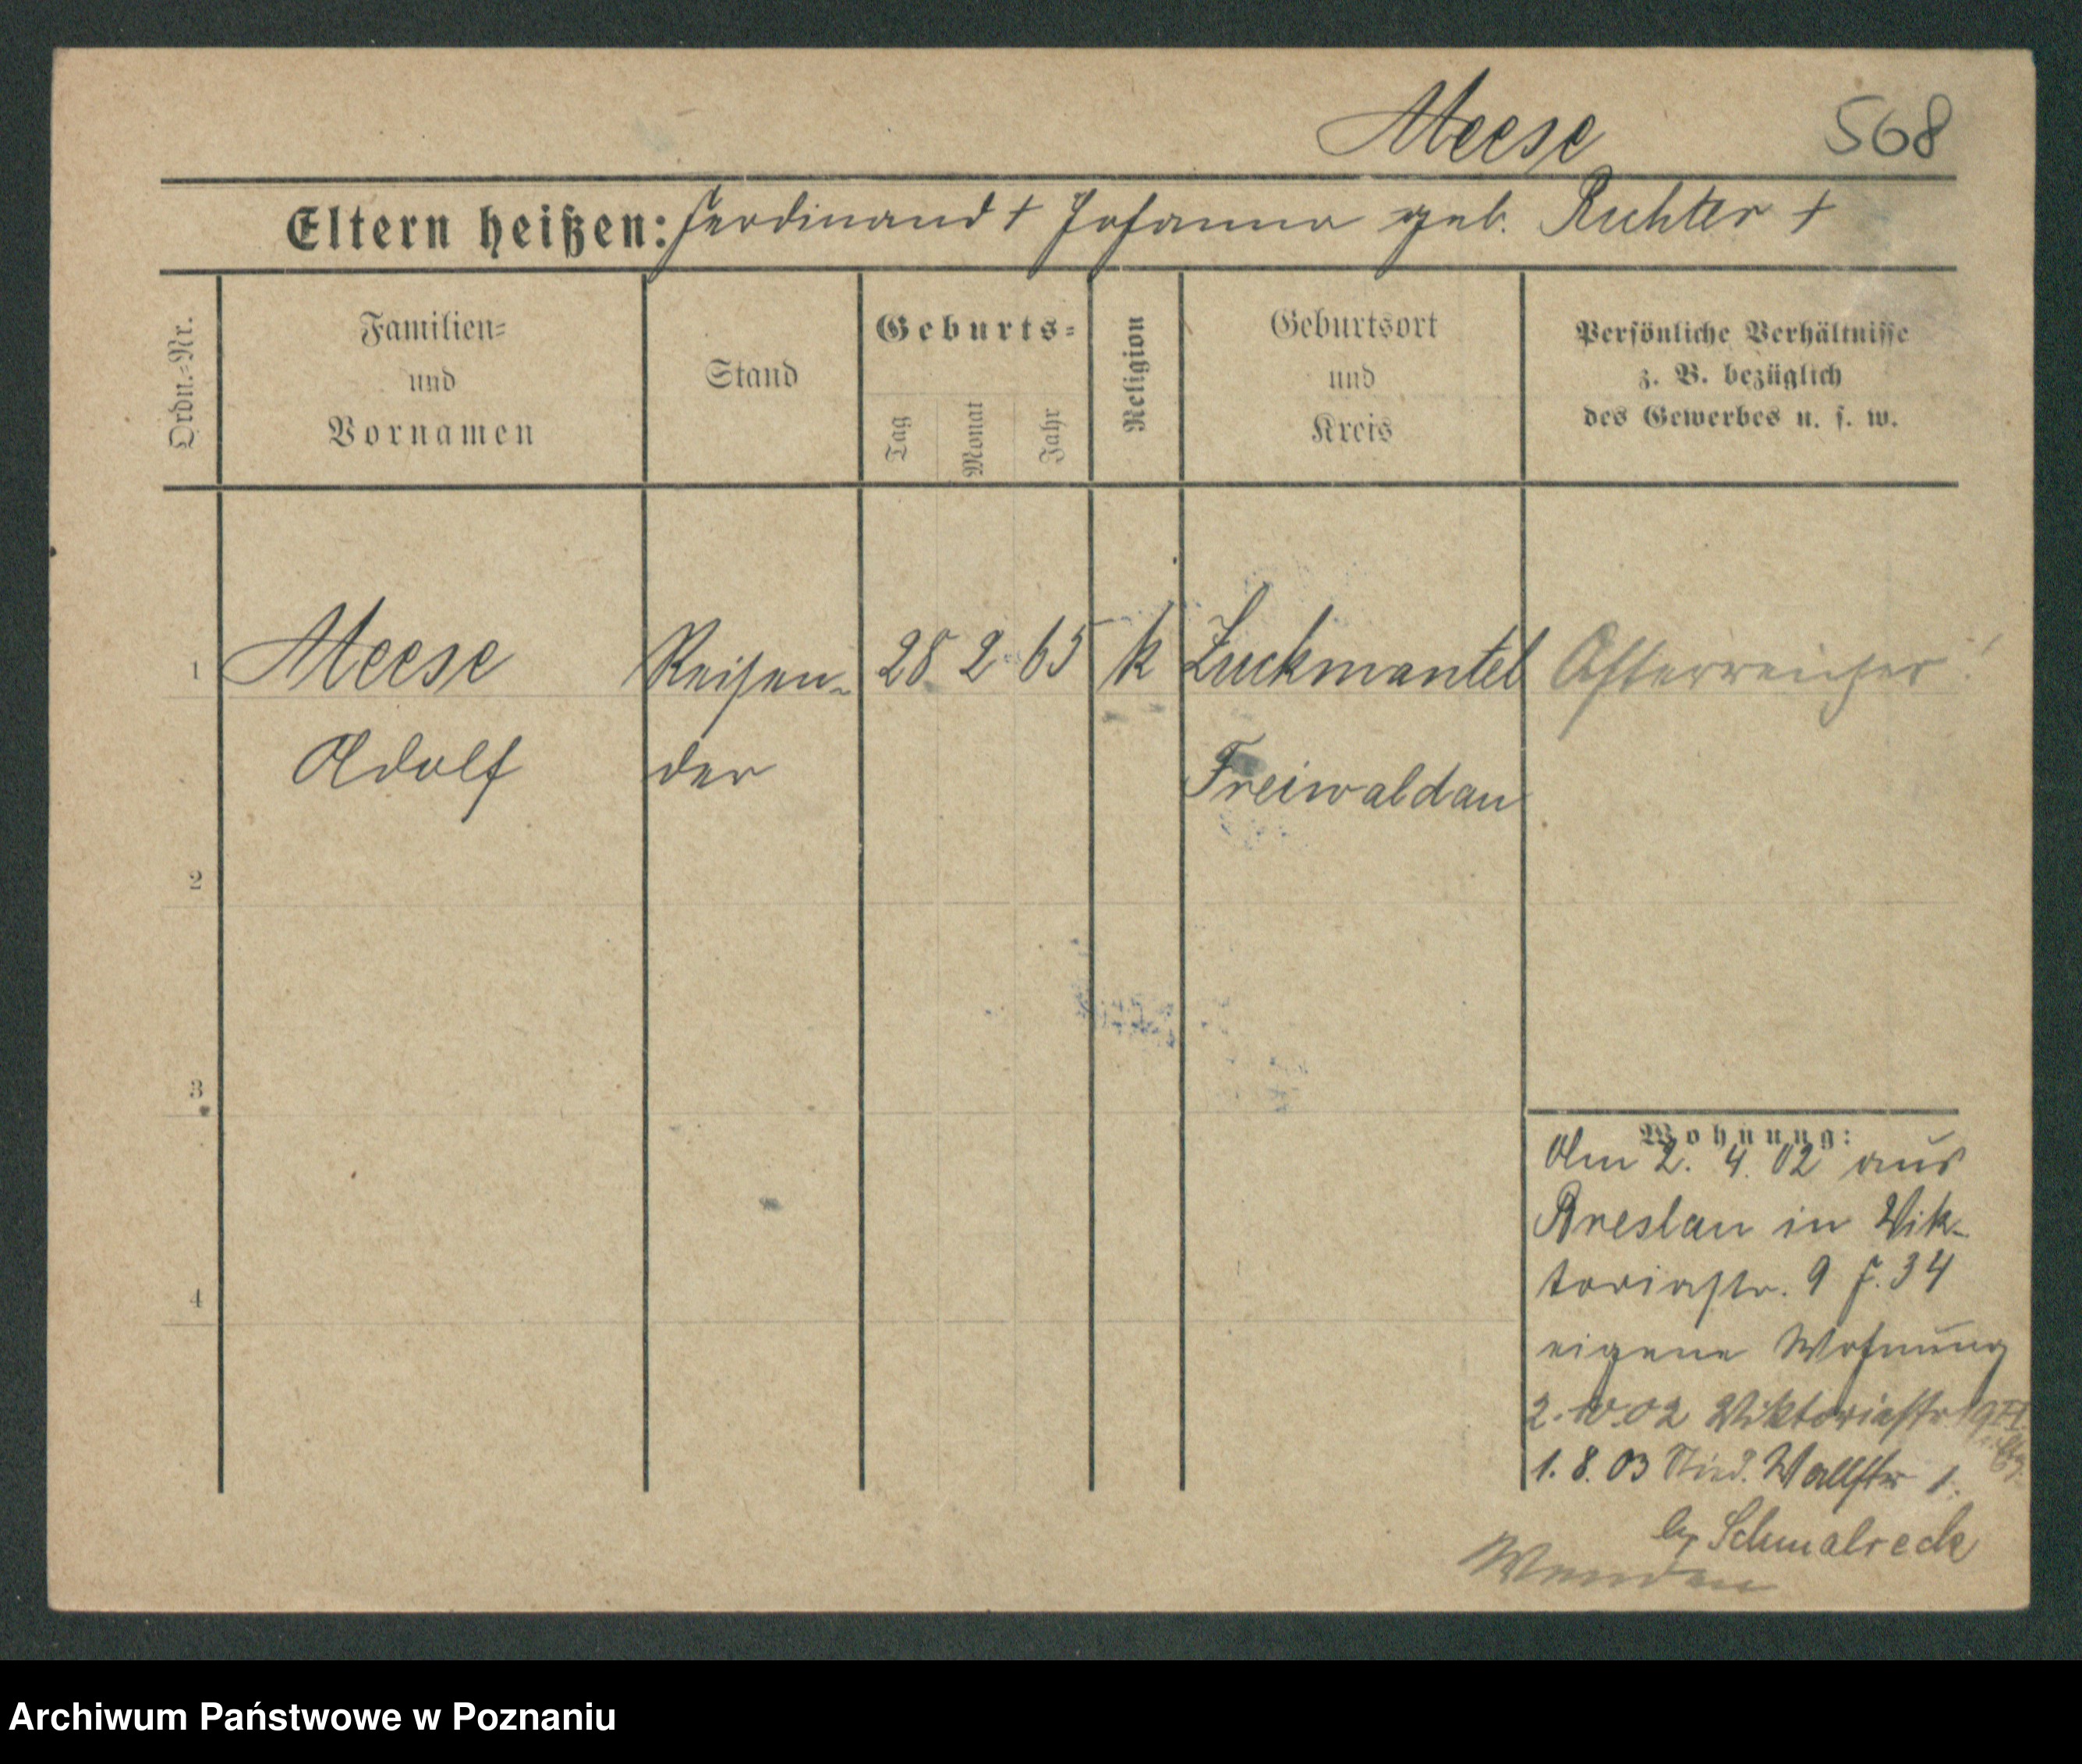 Meese 568
Eltern heißen: Ferdinand + Johanna geb. Richter +
Ordn.-Nr.
Familien-
und
Vornamen
Stand
Geburts-
Tag
Monat
Jahr
Religion
Geburtsort
und
Kreis
Persönliche Verhältnisse
z. B. bezüglich
des Gewerbes u. s. w.
1 Meese Reisen- 28 2 65 k Zuckmantel
Adolf der Freiwaldau
2
3
4
Wohnung:
Am 2. 4. 02 aus
Breslau in Vik-
toriastr. 9 f. 34
eigene Wohnung
2. 10 02 Viktoriastr 19 II
1. 8. 03 Wallstr 1.
Schmalreck
Wenden
Archiwum Państwowe w Poznaniu